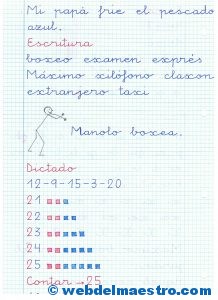 Mi papà frie el pescado
azul.
Escritura
boxeo examen exprés
Máximo xilófono claxon
extranjero taxi
Manolo boxea.
Dictado
12-9-15-3-20
21
22
23
24
25
Contar → 25
© webdelmaestro.com